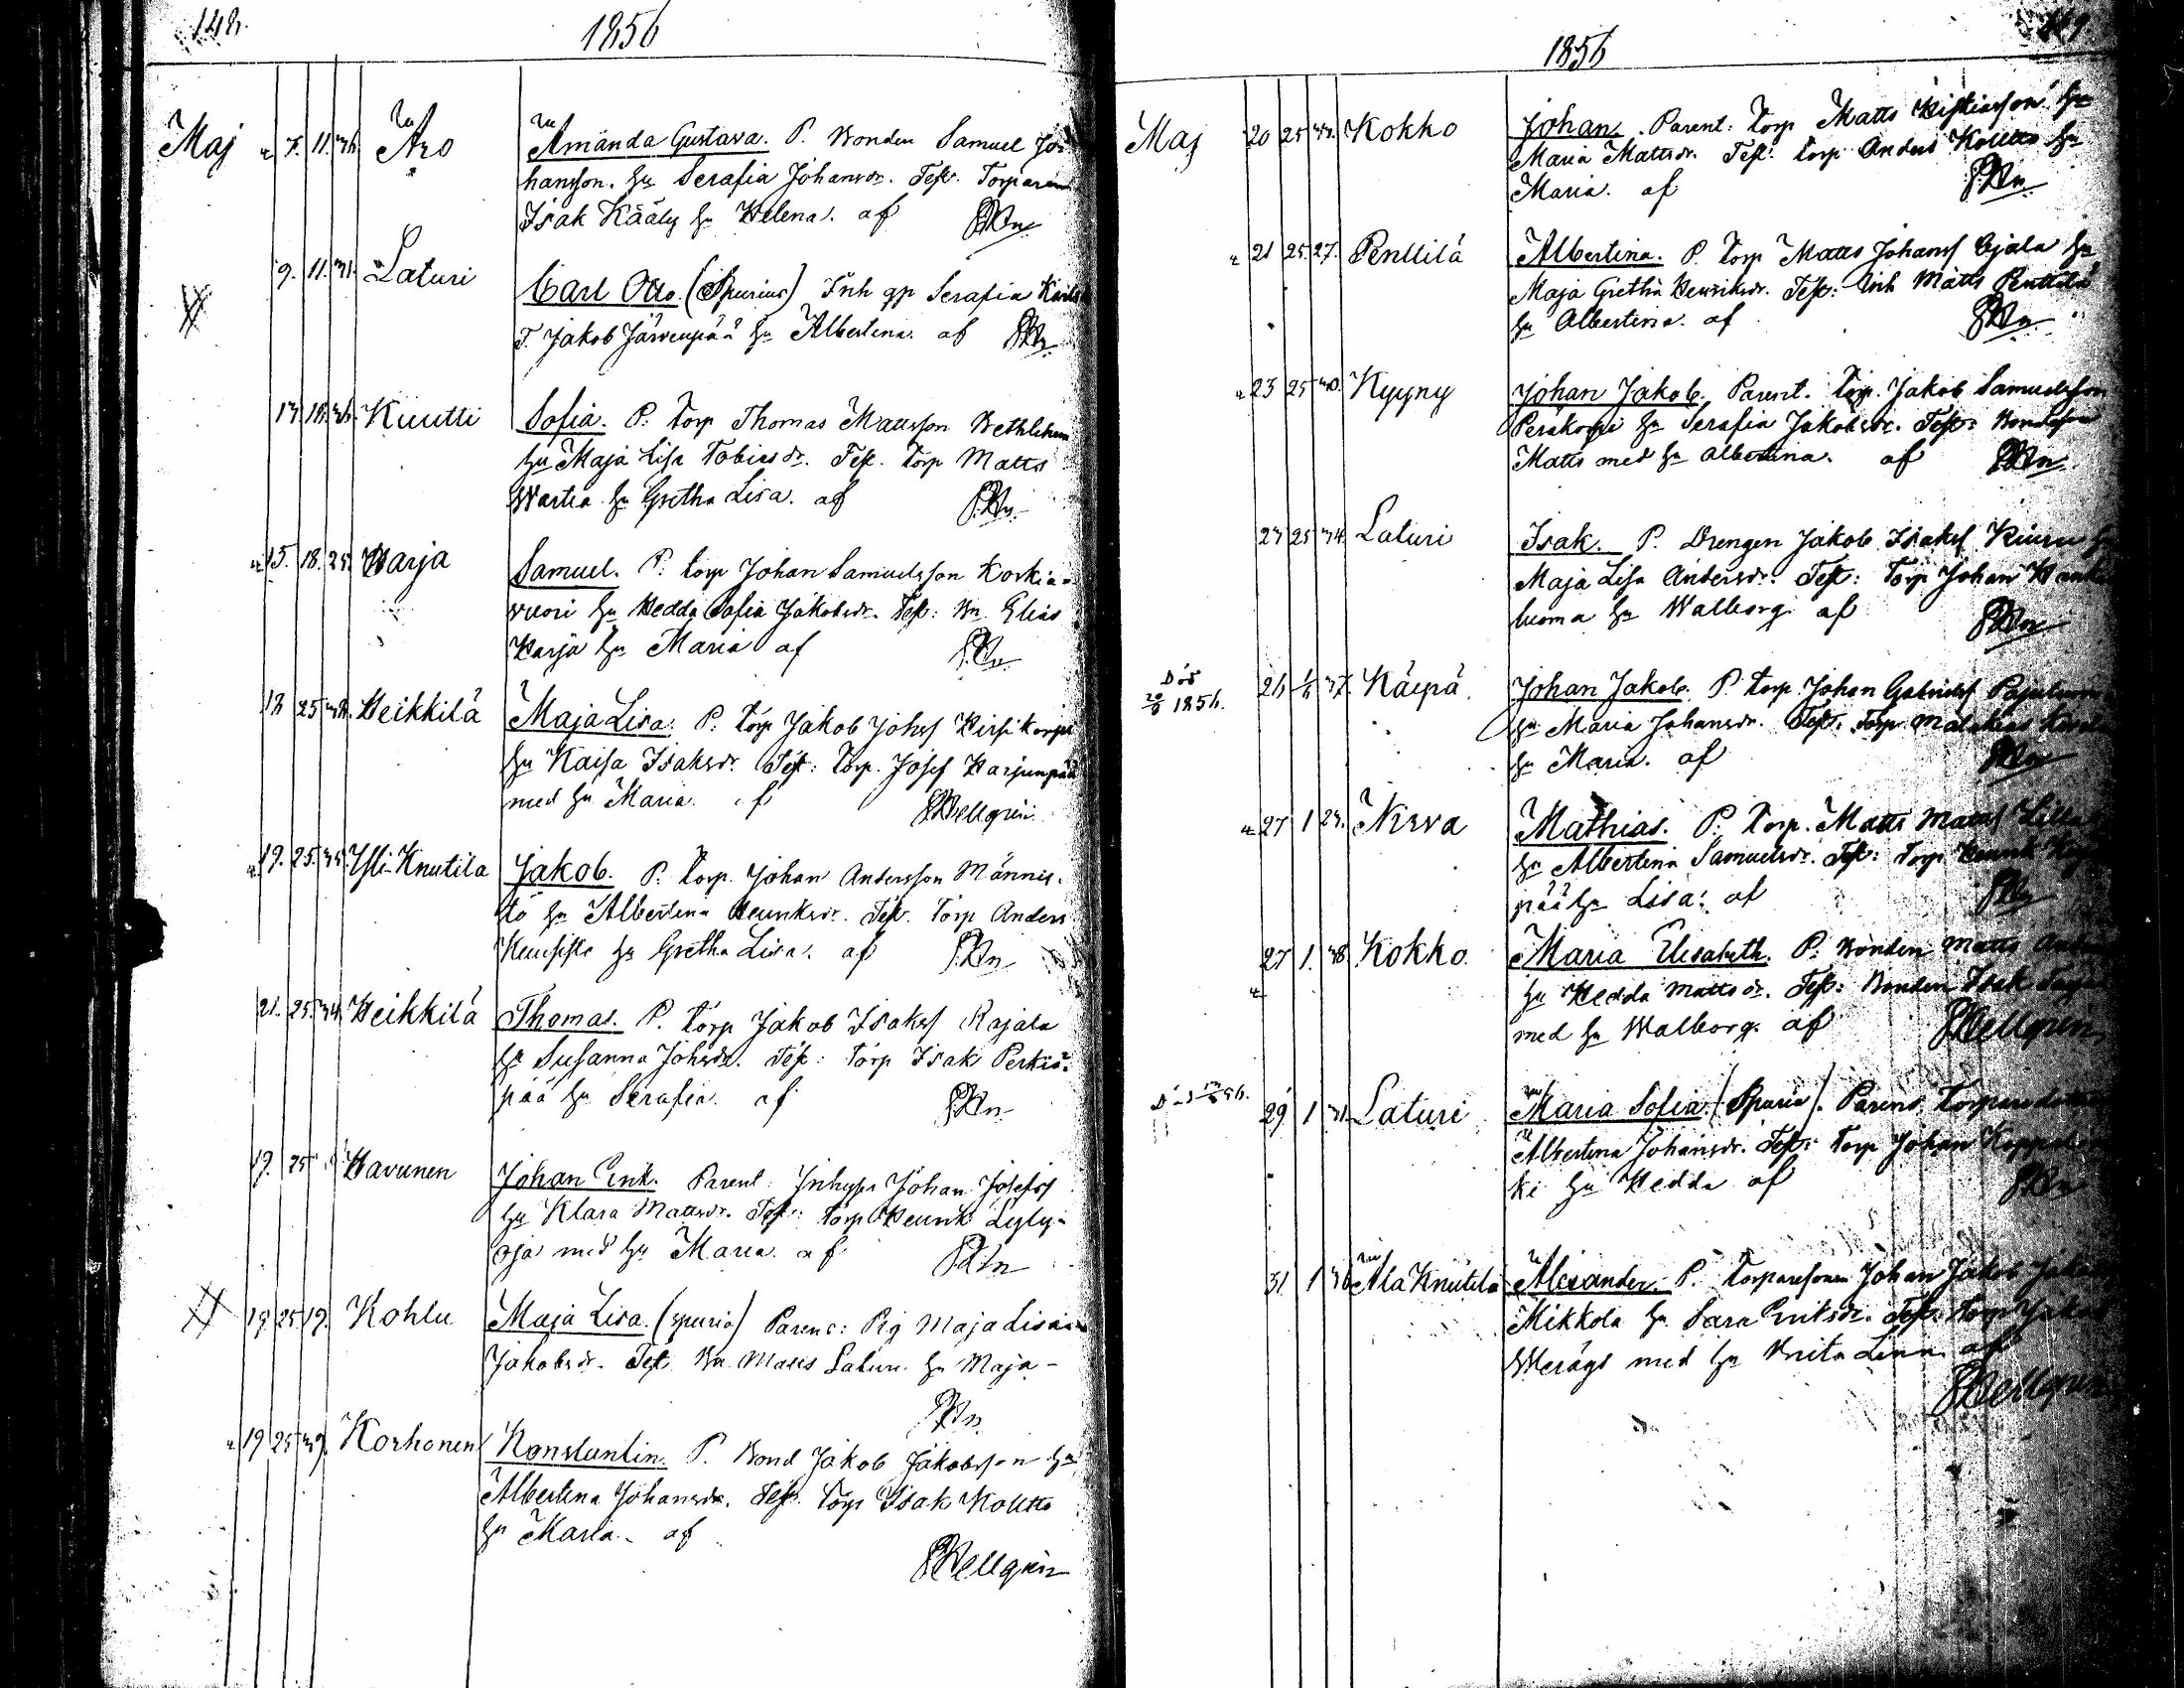 148.
1856
Maj 7. 11. 36 Aro Amanda Gustava. P. Bonden Samuel Jo-
hansson. hu Serafia Johansdr. Test. Torparen
Isak Kääly hu Helena. af
9. 11. 31. Laturi Carl Otto. (Spurius) Inh qp Serafia
T. Jakob Järvenpää hu Albertina. af
18. 36. Kuutti Sofia. P. Torp Thomas Mattsson Bethlehem
hu Maja Lisa Tobiasdr. Test. Torp Matts
Wartia hu Gretha Lisa. af
15. 18. 25. Harja Samuel. P. Torp Johan Samuelsson Koskia-
vuori hu Hedda Sofia Jakobsdr. Test: Bn. Elias
Harja hu Maria af
18 25 38. Heikkilä Maja Lisa. P. Torp Jakob Johss Hirsikorpi
hu Kaisa Isaksdr. Test: Torp. Josef Harjunpää
med hu Maria. af Hellgrén
19. 25. 35. Yli-Knutila Jakob. P. Torp. Johan Andersson Männis-
tö hu Albertina Henriksdr. Test. Torp Anders
hu Gretha Lisa. af
21. 25. 34. Heikkilä Thomas. P. Torp Jakob Isakss Rajala
hu Susanna Johsdr. Test: Torp Isak Perkiö-
pää hu Serafia. af
19. 25 Havunen Johan Erik. Parent: Inhyses Johan Josefss
hu Klara Mattsdr. Test: Torp Henrik Lyly-
oja med hu Maria. af
19. 25. 19. Kohlu Maja Lisa. (spuria) Parens: Pig Maja Lisa
Jakobsdr. Test. Bn. Matts Laturi hu Maja-
19 25 39. Korhonen Konstantin. P. Bond Jakob Jakobsson hu
Albertina Johansdr. Test. Torp Isak Koltto
hu Maria. af
Hellgrén
1856
Maj 20 25 Kokko Johan. Parent: Torp Matts hu
Maria Mattsdr. Test: Torp Anders Koltto hu
Maria. af
21 25. 27. Penttilä Albertina. P. Torp Matts Johanss Ojala hu
Maja Gretha Henriksdr. Test: Inh Matts Penttilä
hu Albertina. af
23 25 40. Kyyny Johan Jakob. Parent. Torp. Jakob Samuelsson
Peräkorpi hu Serafia Jakobsdr. Test: Bondeson
Matts med hu Albertina. af
23 25 34. Laturi Isak. P. Drengen Jakob Isakss Kiuru hu
Maja Lisa Andersdr. Test: Torp Johan
luoma hu Walborg af
Död
20/6 1856. 26 1/6 37. Käypä. Johan Jakob. P. Torp. Johan Gabrielss
hu Maria Johansdr. Test: Torp Malakias
hu Maria. af
27 1 24. Nirva Mathias. P. Torp. Matts Matss
hu Albertina Samuelsdr. Test: Torp Henrik
pää hu Lisa. af
27 1. 38 Kokko. Maria Elisabeth. P. Bonden Matts
hu Hedda Mattsdr. Test: Bonden Isak
med hu Walborg. af Hellgrén
29 1 31 Laturi Maria Sofia. (Spuria). Parens Torparedottren
Albertina Johansdr. Test: Torp Johan
ki hu Hedda af
31 1 36 Ala Knutila Alexander. P. Torparesonen Johan Jakob
Mikkola hu Sara Eriksdr. Test: Torp Jakob
med hu Brita Lena af
Hellgrén